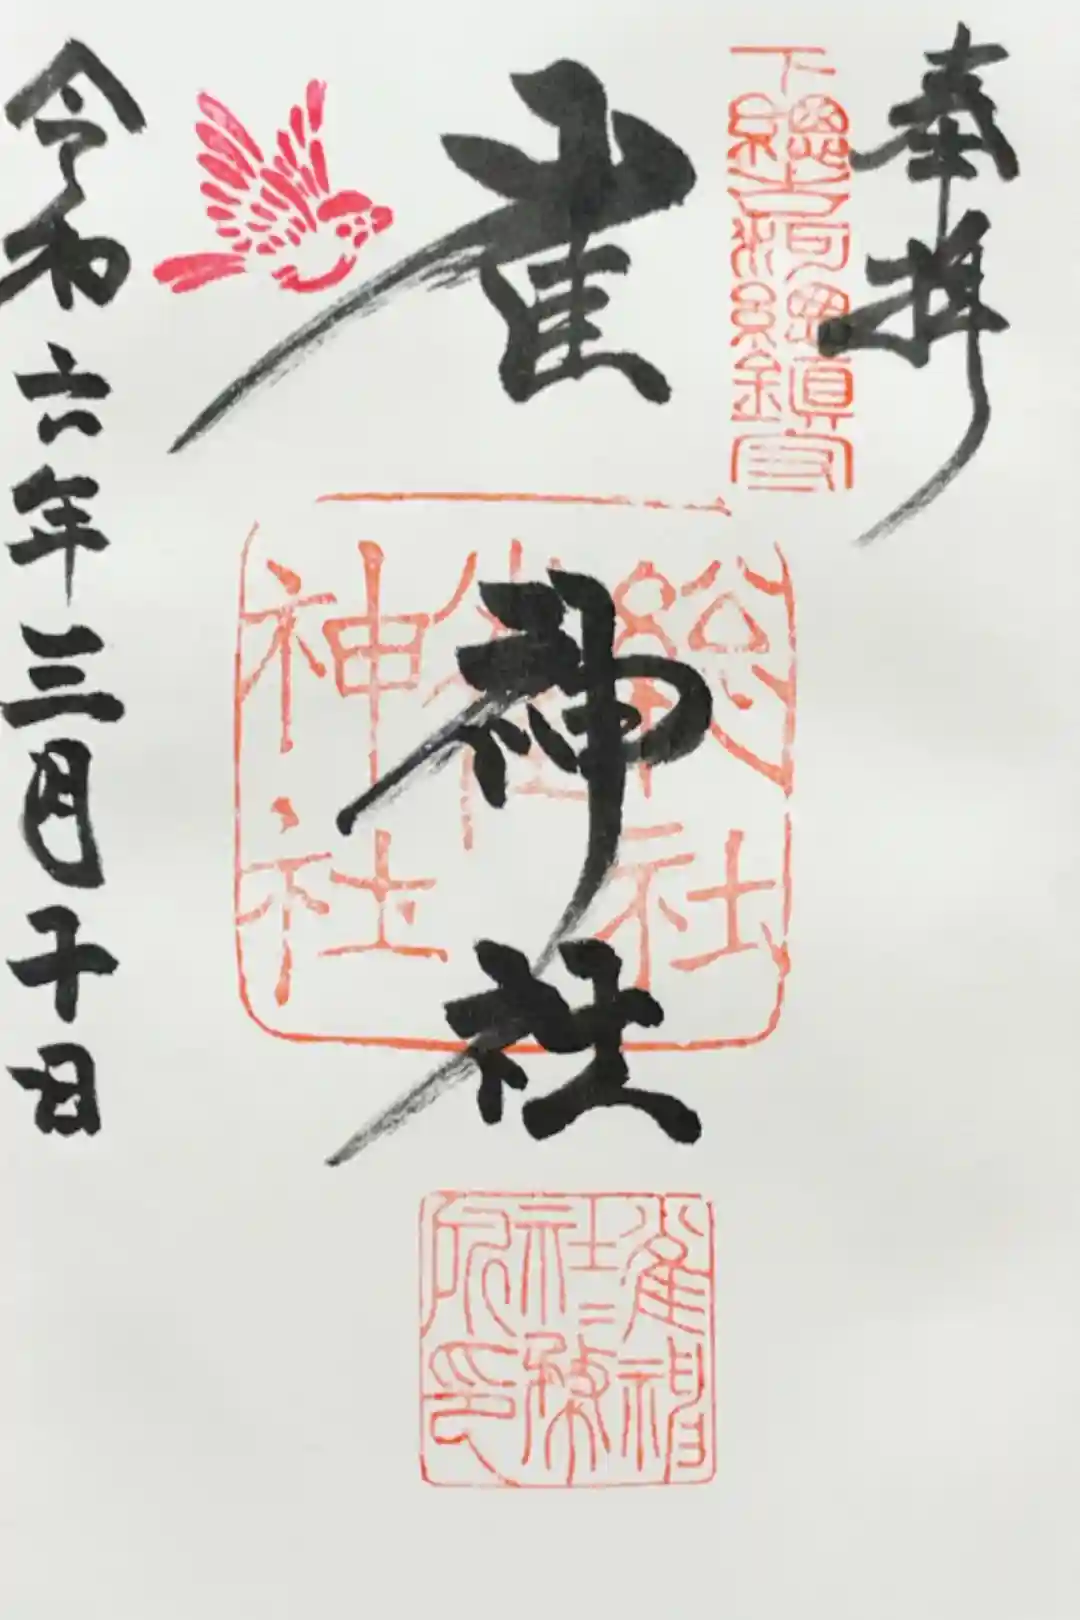 奉拝
下總古河總鎮守
雀神社
総社
雀
神社
雀神
社〻務
所印
令和六年三月二十日